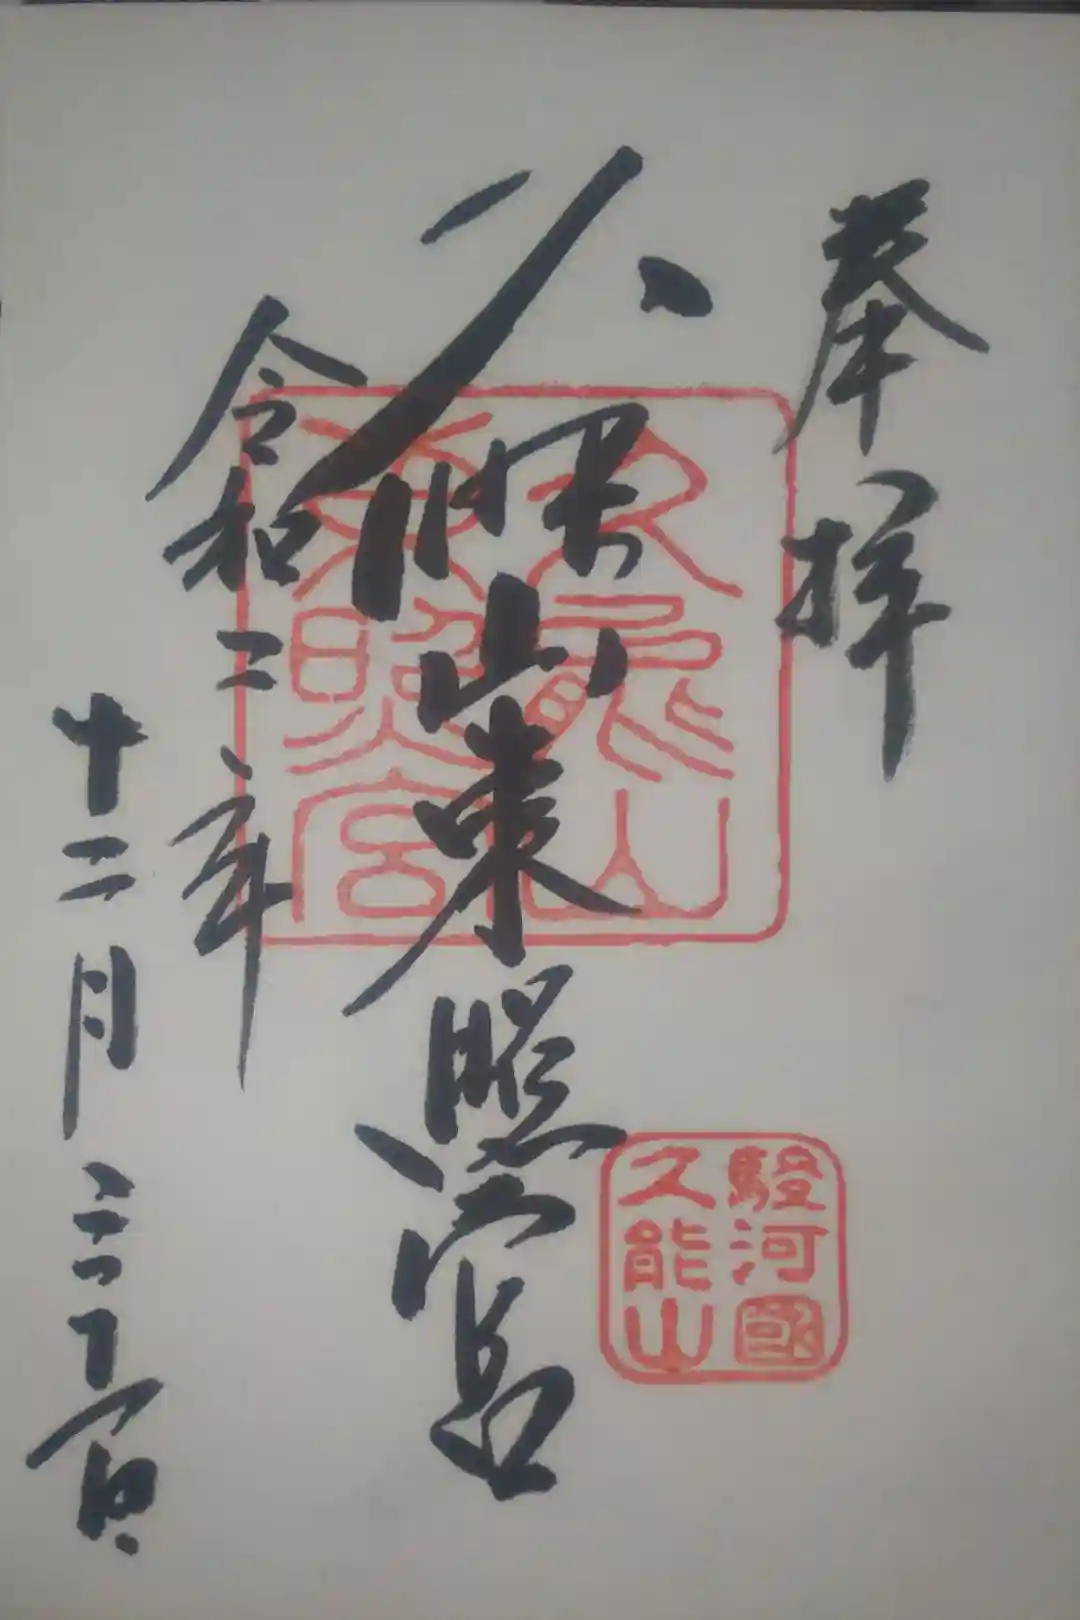 奉拝
久能山東照宮
令和二年
十二月
久能山
東照宮
駿河國
久能山